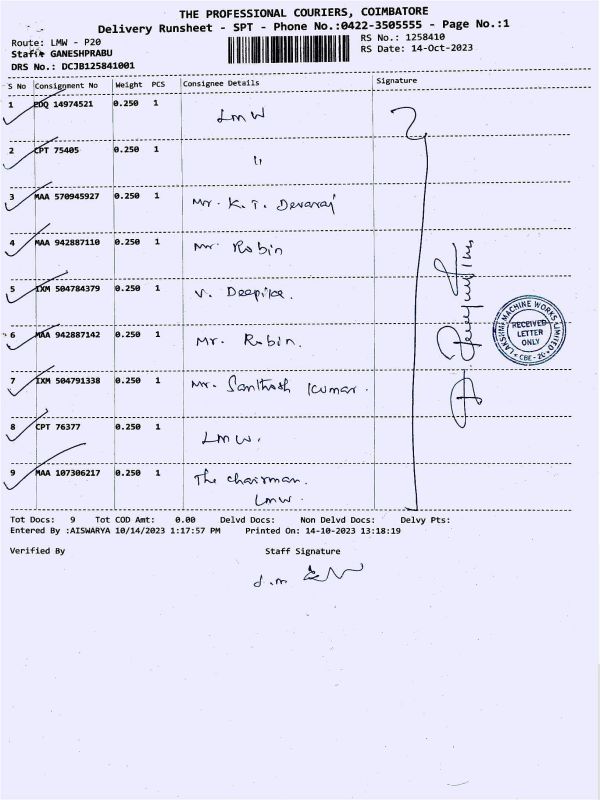 THE PROFESSIONAL COURIERS, COIMBATORE
Delivery Runsheet - SPT - Phone No.:0422-3505555 - Page No.:1
Route: LMW - P20
RS No.: 1258410
Staff: GANESHPRABU
RS Date: 14-Oct-2023
DRS No.: DCJB125841001
S No Consignment No Weight PCS Consignee Details Signature
1 EDQ 14974521 0.250 1 LMW
2 CPT 75405 0.250 1 "
3 MAA 570945927 0.250 1 Mr. K. T. Devaraj
4 MAA 942887110 0.250 1 Mr. Robin
5 IXM 504784379 0.250 1 V. Deepika.
6 MAA 942887142 0.250 1 Mr. Robin.
7 IXM 504791338 0.250 1 Mr. Santhosh Kumar.
8 CPT 76377 0.250 1 LMW.
9 MAA 107306217 0.250 1 The chairman.
LMW.
LAKSHMI MACHINE WORKS LIMITED
RECEIVED
LETTER
ONLY
Tot Docs: 9 Tot COD Amt: 0.00 Delvd Docs: Non Delvd Docs: Delvy Pts:
Entered By :AISWARYA 10/14/2023 1:17:57 PM Printed On: 14-10-2023 13:18:19
Verified By Staff Signature